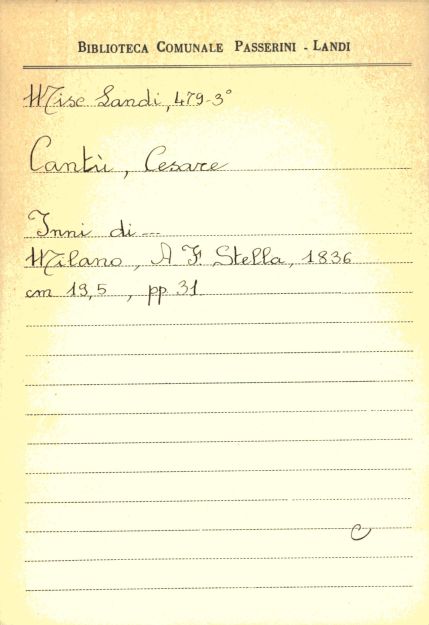 BIBLIOTECA COMUNALE PASSERINI - LANDI
Misc Landi, 479-3°
Cantù, Cesare
Inni di ---
Milano, A F. Stella, 1836
cm 19,5 , pp 31
C